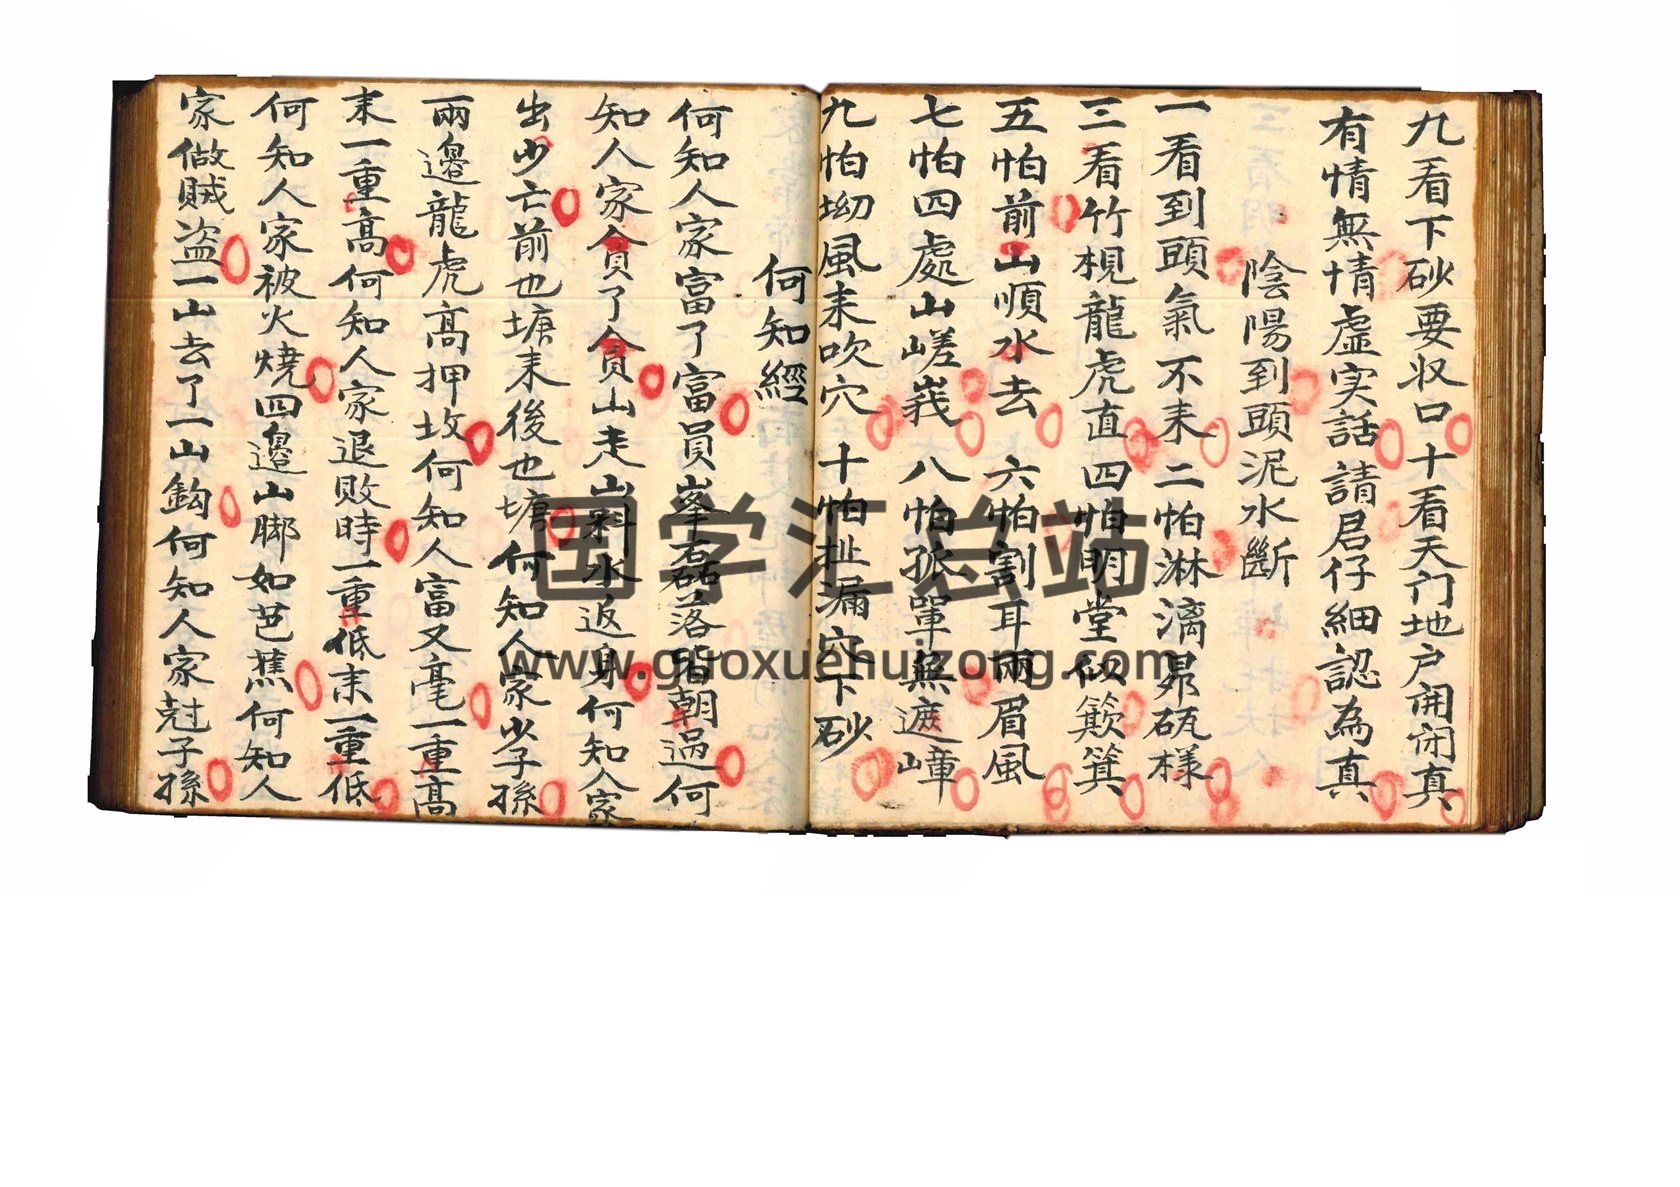 九看下砂要収口十看天门地户開闭真
有情無情虚实話請君仔細認為真
陰陽到頭泥水斷
一看到頭氣不耒二怕淋漓昴瓳樣
三看竹梘龍虎直四怕明堂似簸箕
五怕前山順水去六怕割耳兩眉風
七怕四處山嵯峩八怕孤單無遮嶂
九怕坳風耒吹穴十怕扯漏穴下砂
何知經
何知人家富了富員峯磊落皆朝過何
知人家貪了貪山走山斜水返身何知人家
出少亡前也塘耒後也塘何知人家少子孫
兩邉龍虎高押坟何知人富又毫一重高
耒一重高何知人家退敗時一重低耒一重低
何知人家被火燒四邉山脚如芭蕉何知人
家做贼盗一山去了一山鈎何知人家尅子孫
国学汇总站
www.guoxuehuizong.com